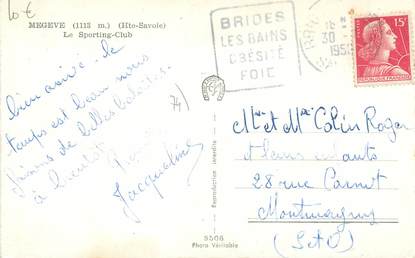 10€
MEGEVE (1113 m.) (Hte-Savoie)
Le Sporting-Club
BRIDES
LES BAINS
OBÉSITÉ
FOIE
18
30
195
15F
POSTES
bien arrivée. le
temps est beau nous
faisons de belles balades.
à bientôt
Jacqueline
74)
Reproduction interdite
5506
Photo Véritable
Mr et Me Colin Roger
et leurs enfants
28 rue Carnot
Montmagny
(S et O)